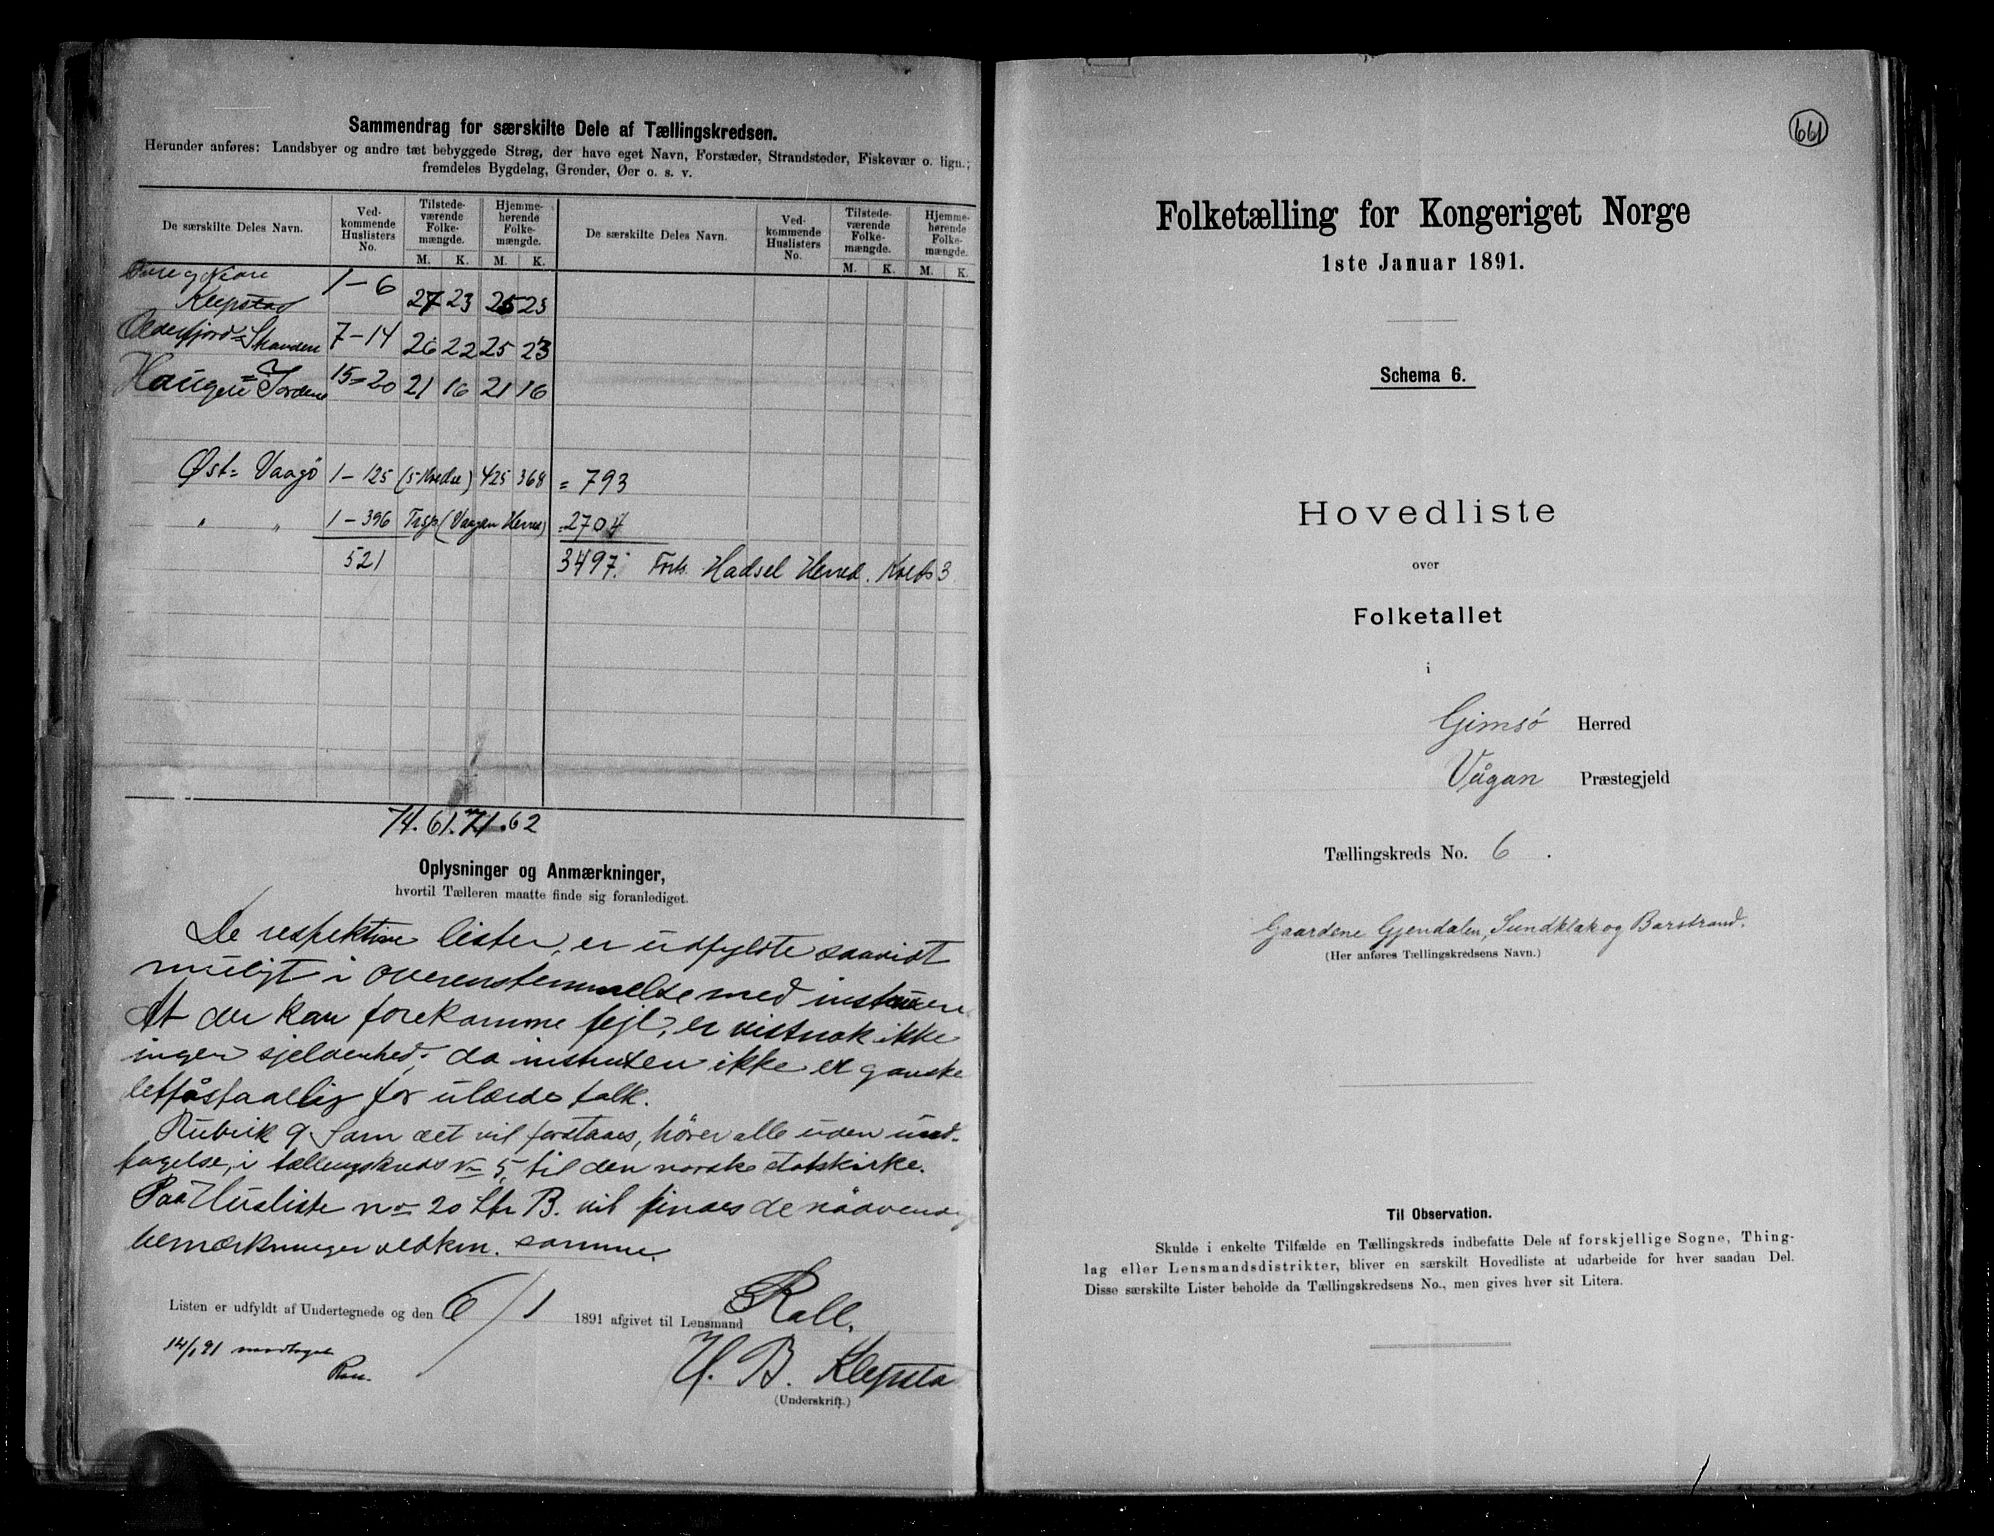 Sammendrag for særskilte Dele af Tællingskredsen.
Herunder anføres: Landsbyer og andre tæt bebyggede Strøg, der have eget Navn, Forstæder, Strandsteder, Fiskevær o. lign.;
fremdeles Bygdelag, Grender, Øer o. s. v.
De særskilte Deles Navn. Ved-kommende Huslisters No. Tilstede-værende Folke-mængde. Hjemme-hørende Folke-mængde. De særskilte Deles Navn. Ved-kommende Huslisters No. Tilstede-værende Folke-mængde. Hjemme-hørende Folke-mængde.
M. K. M. K. M. K. M. K.
Klepstad 1-6 27 23 25 23
Olderfjord=Stranden 7-14 26 22 25 23
Haugen=Jordene 15=20 21 16 21 16
Øst=Vaagö 1-125 (5 Kredse) 425 368 = 793
" " 1-396 Trsp (Vaagan Herred) =2704
521 3497. Forts. Hadsel Herred. Kreds 3
74. 61. 71. 62
Oplysninger og Anmærkninger,
hvortil Tælleren maatte finde sig foranlediget.
De respektive lister, er udfyldte saavidt
muligt i overenstemmelse med
At der kan forekomme fejl, er vistnok ikke
ingen sjeldenhed, da ikke er ganske
for ulærde folk.
Rubrik 9 Som det vil forstaaes, hører alle uden und-
tagelse, i tællingskreds No 5, til den norske statskirke.
Paa Husliste no 20 Ltr B. vil findes de nödvendige
bemærkninger vedkm. samme.
Listen er udfyldt af Undertegnede og den 6/1 1891 afgivet til Lensmand Rall.
14/1 91 modtaget
H. B. Klepsta
(Underskrift.)
661
Folketælling for Kongeriget Norge
1ste Januar 1891.
Schema 6.
Hovedliste
over
Folketallet
i
Gimsø Herred
Vågan Præstegjeld
Tællingskreds No. 6.
Gaardene Gjendalen, Sundklak og Barstrand.
(Her anføres Tællingskredsens Navn.)
Til Observation.
Skulde i enkelte Tilfælde en Tællingskreds indbefatte Dele af forskjellige Sogne, Thing-
lag eller Lensmandsdistrikter, bliver en særskilt Hovedliste at udarbeide for hver saadan Del.
Disse særskilte Lister beholde da Tællingskredsens No., men gives hver sit Litera.